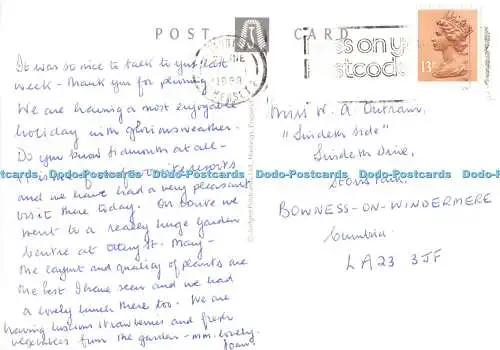 POST CARD
It was so nice to talk to you last
week - Thank you for phoning.
We are having a most enjoyable
holiday with glorious weather.
Do you know Sidmouth at all -
It is one of our favourite resorts
and we have had a very pleasant
visit there today. On course we
went to a really huge Garden
Centre at Ottery St. Mary -
the layout and quality of plants are
the best I have seen and we had
a lovely lunch there too. We are
having luscious strawberries and fresh
vegetables from the garden - mm. lovely.
Joan.
13P
Miss W. A. Outram,
"Lindeth Side"
Lindeth Drive,
Storrs Park,
BOWNESS-ON-WINDERMERE
Cumbria.
LA23 3JF
Dodo-Postcards Dodo-Postcards Dodo-Postcards Dodo-Postcards Dodo-Postcards